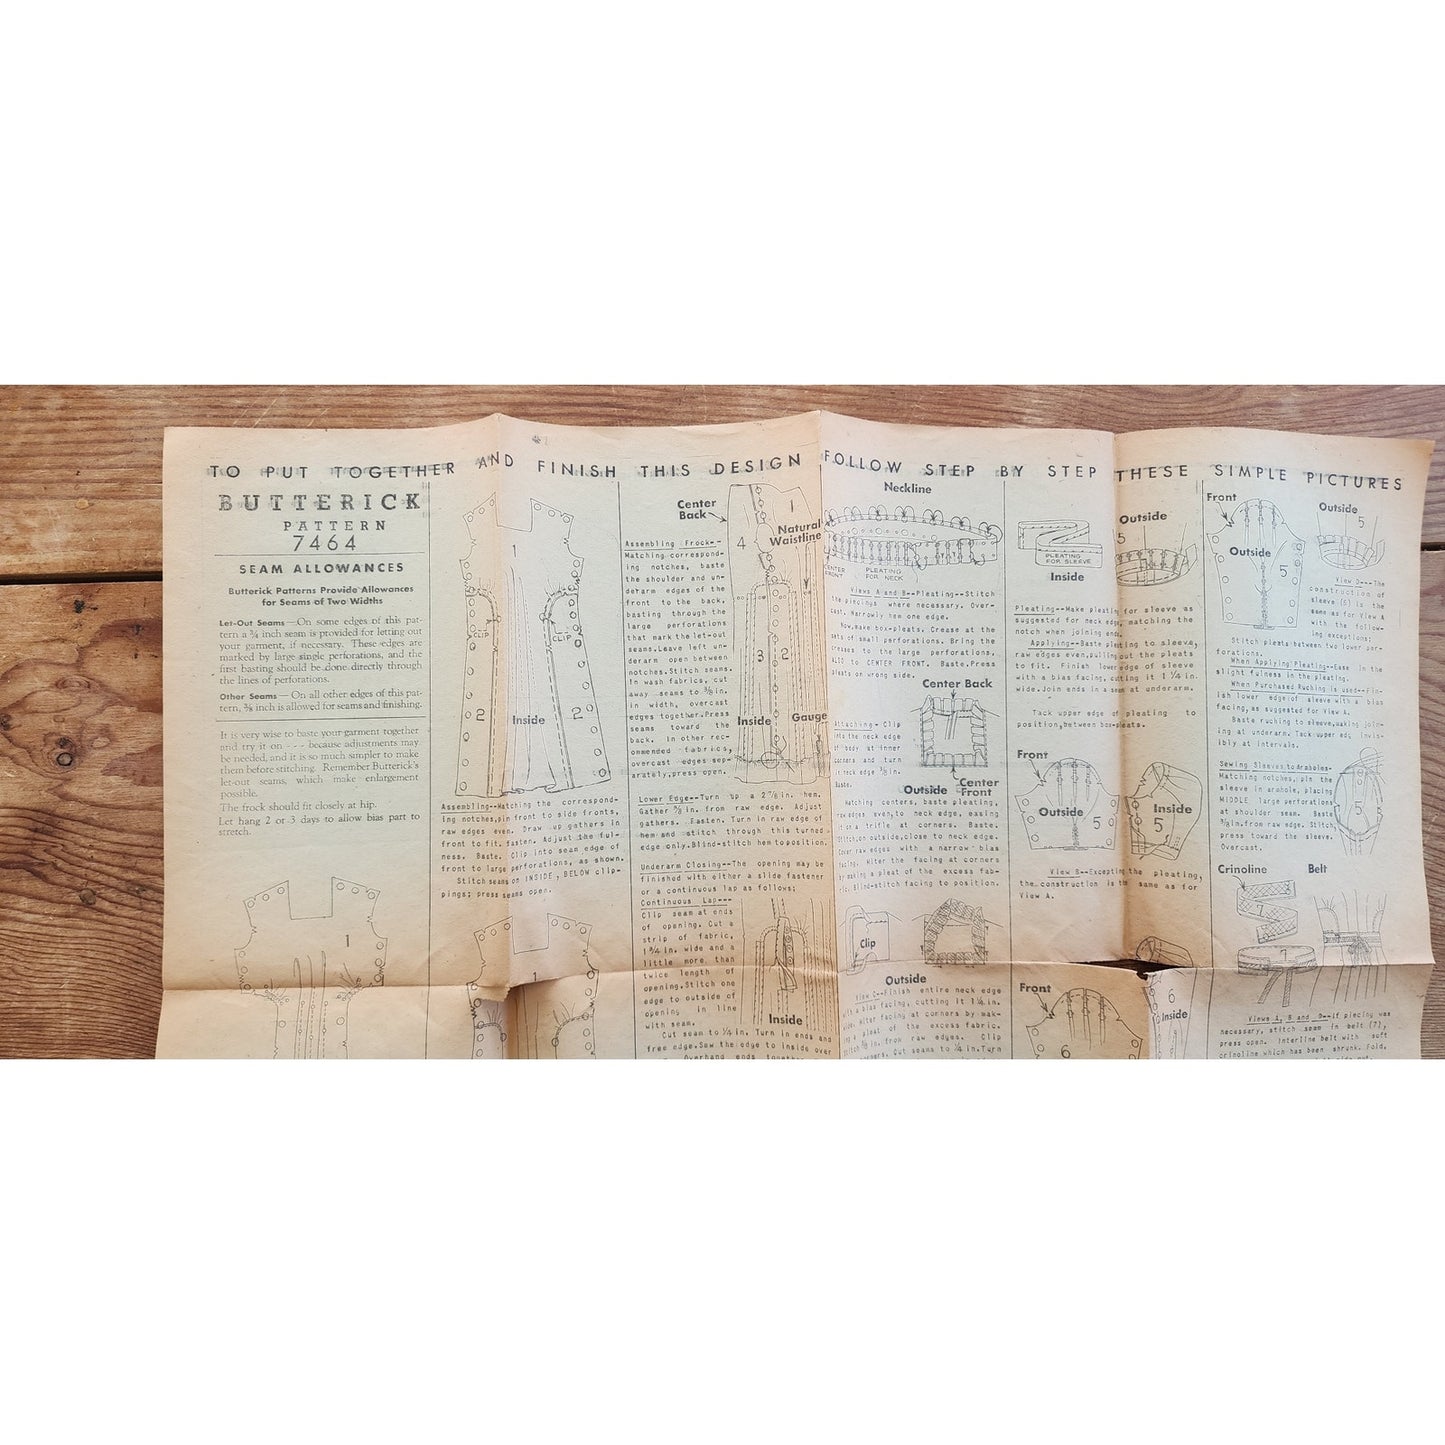 TO PUT TOGETHER AND FINISH THIS DESIGN FOLLOW STEP BY STEP THESE SIMPLE PICTURES
BUTTERICK
PATTERN
7464
SEAM ALLOWANCES
Butterick Patterns Provide Allowances
for Seams of Two Widths
Let-Out Seams—On some edges of this pat-
tern a ¾ inch seam is provided for letting out
your garment, if necessary. These edges are
marked by large single perforations, and the
first basting should be done directly through
the lines of perforations.
Other Seams—On all other edges of this pat-
tern, ⅜ inch is allowed for seams and finishing.
It is very wise to baste your garment together
and try it on - - - because adjustments may
be needed, and it is so much simpler to make
them before stitching. Remember Butterick's
let-out seams, which make enlargement
possible.
The frock should fit closely at hip.
Let hang 2 or 3 days to allow bias part to
stretch.
1
1
CLIP
CLIP
2
Inside
2
Assembling--Matching the correspond-
ing notches, pin front to side fronts,
raw edges even. Draw up gathers in
front to fit. Fasten. Adjust the ful-
ness. Baste. Clip into seam edge of
front to large perforations, as shown.
Stitch seams on INSIDE, BELOW clip-
pings; press seams open.
1
Assembling Frock--
Matching correspond-
ing notches, baste
the shoulder and un-
derarm edges of the
front to the back,
basting through the
large perforations
that mark the let-out
seams. Leave left un-
derarm open between
notches. Stitch seams.
In wash fabrics, cut
away seams to ⅜ in.
in width, overcast
edges together. Press
seams toward the
back. In other rec-
ommended fabrics,
overcast edges sep-
arately, press open.
Center
Back
1
4
Natural
Waistline
3
2
Inside
Gauge
Lower Edge--Turn up a 2⅞ in. hem.
Gather ⅜ in. from raw edge. Adjust
gathers. Fasten. Turn in raw edge of
hem and stitch through this turned
edge only. Blind-stitch hem to position.
Underarm Closing--The opening may be
finished with either a slide fastener
or a continuous lap as follows;
Continuous Lap---
Clip seam at ends
of opening. Cut a
strip of fabric,
1¾ in. wide and a
little more than
twice length of
opening. Stitch one
edge to outside of
opening in line
with seam.
Inside
Cut seam to ¼ in. Turn in ends and
free edge. Sew the edge to inside over
Overhang ends together
Neckline
CENTER
FRONT
PLEATING
FOR NECK
Views A and B--Pleating--Stitch
the piecings where necessary. Over-
cast. Narrowly hem one edge.
Now, make box-pleats. Crease at the
sets of small perforations. Bring the
creases to the large perforations.
ALSO to CENTER FRONT. Baste. Press
pleats on wrong side.
Center Back
Attaching- Clip
into the neck edge
of body at inner
corners and turn
in neck edge ⅜ in.
Baste.
Outside
Center
Front
Matching centers, baste pleating,
raw edges even, to neck edge, easing
it on a trifle at corners. Baste.
Stitch, on outside, close to neck edge.
Cover raw edges with a narrow bias
facing. Miter the facing at corners
by making a pleat of the excess fab-
ric. Blind-stitch facing to position.
Clip
Outside
View C-Finish entire neck edge
with a bias facing, cutting it 1¼ in.
Miter facing at corners by mak-
a pleat of the excess fabric.
⅜ in. from raw edges. Clip
corners. Cut seams to ¼ in. Turn
PLEATING
FOR SLEEVE
Inside
Outside
5
Pleating--Make pleating for sleeve as
suggested for neck edge, matching the
notch when joining ends.
Applying--Baste pleating to sleeve,
raw edges even, pulling out the pleats
to fit. Finish lower edge of sleeve
with a bias facing, cutting it 1¼ in.
wide. Join ends in a seam at underarm.
Tack upper edge of pleating to
position, between box-pleats.
Front
Outside
5
Inside
5
View B--Excepting the pleating,
the construction is the same as for
View A.
Front
6
6
Inside
Front
Outside
5
Outside
5
View D---The
construction of
sleeve (5) is the
same as for View A
with the follow-
ing exceptions;
Stitch pleats between two lower per-
forations.
When Applying Pleating--Ease in the
slight fulness in the pleating.
When Purchased Ruching is used--Fin-
ish lower edge of sleeve with a bias
facing, as suggested for View A.
Baste ruching to sleeve, making join-
ing at underarm. Tack upper edge invis-
ibly at intervals.
Sewing Sleeves to Armholes-
Matching notches, pin the
sleeve in armhole, placing
MIDDLE large perforations
at shoulder seam. Baste
⅜ in. from raw edge. Stitch,
press toward the sleeve.
Overcast.
5
Crinoline
Belt
7
7
Views A, B and D--If piecing was
necessary, stitch seam in belt (7),
press open. Interline belt with soft
crinoline which has been shrunk. Fold,